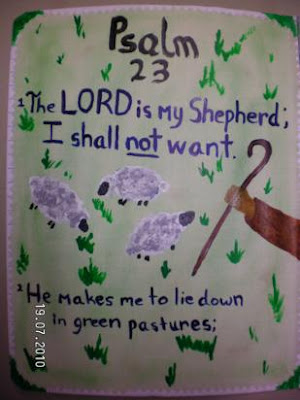 Psalm
23
1 The LORD is my Shepherd;
I shall not want.
2 He makes me to lie down
in green pastures;
19.07.2010